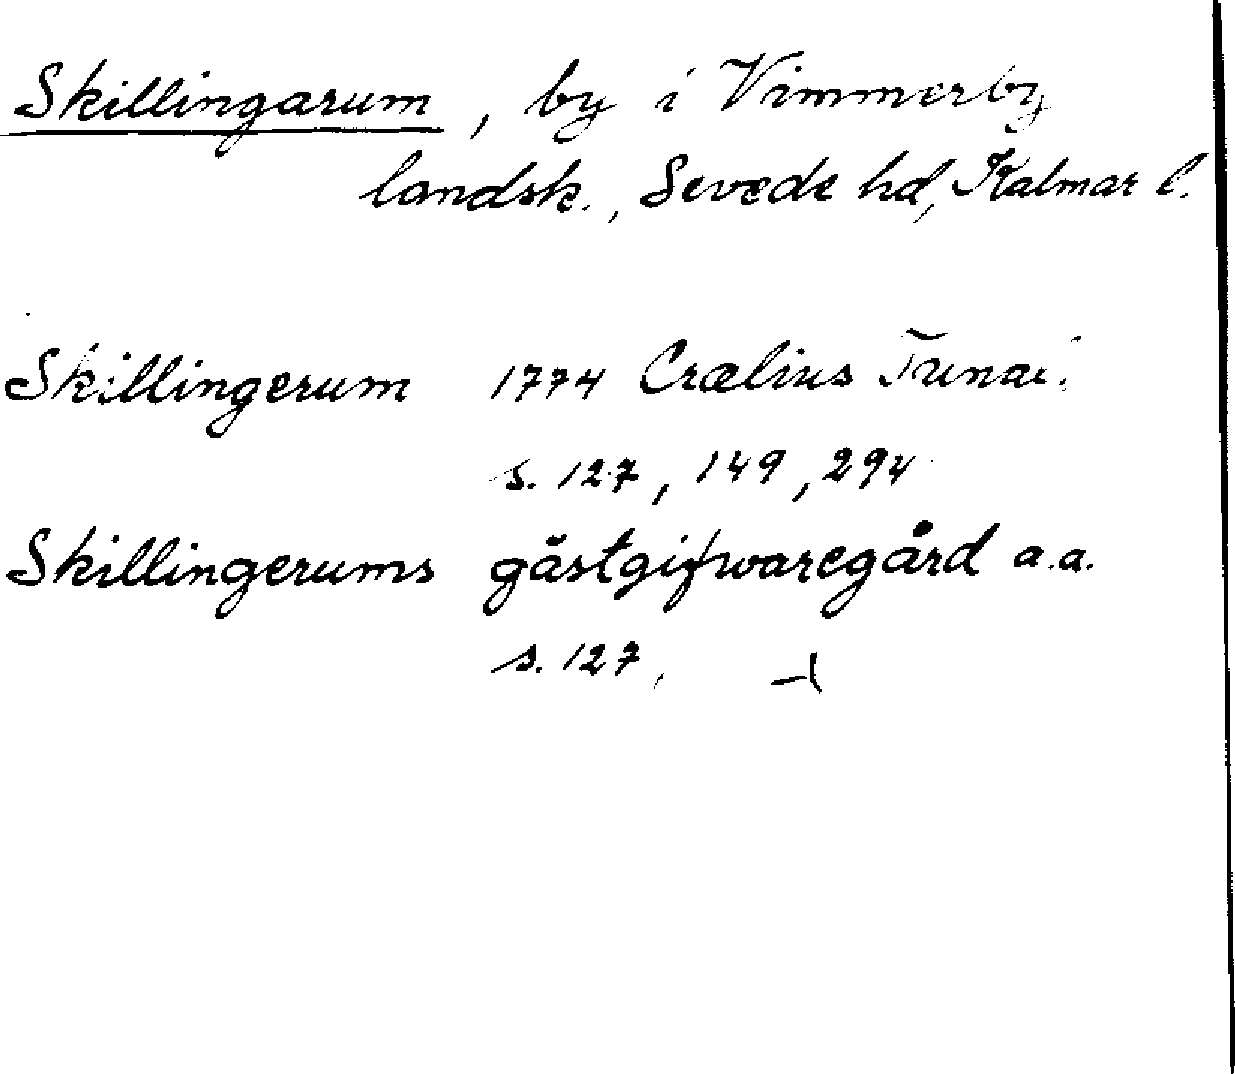 Skillingarum, by i Vimmerby
landsk., Sevede hd, Kalmar l.
Skillingerum 1774 Crælius Tunal.
s. 127, 149, 294
Skillingerums gästgifwaregård a.a.
s. 127,